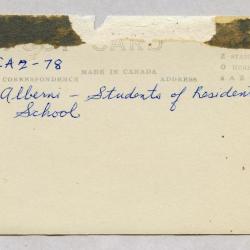 POST CARD
CA2-78
CORRESPONDENCE MADE IN CANADA ADDRESS
Alberni - Students of Residen
School